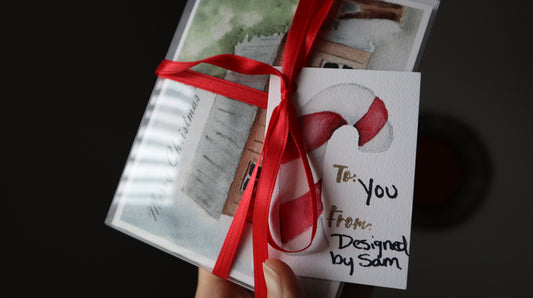 Merry Christmas
To: You
From:
Designed
by Sam